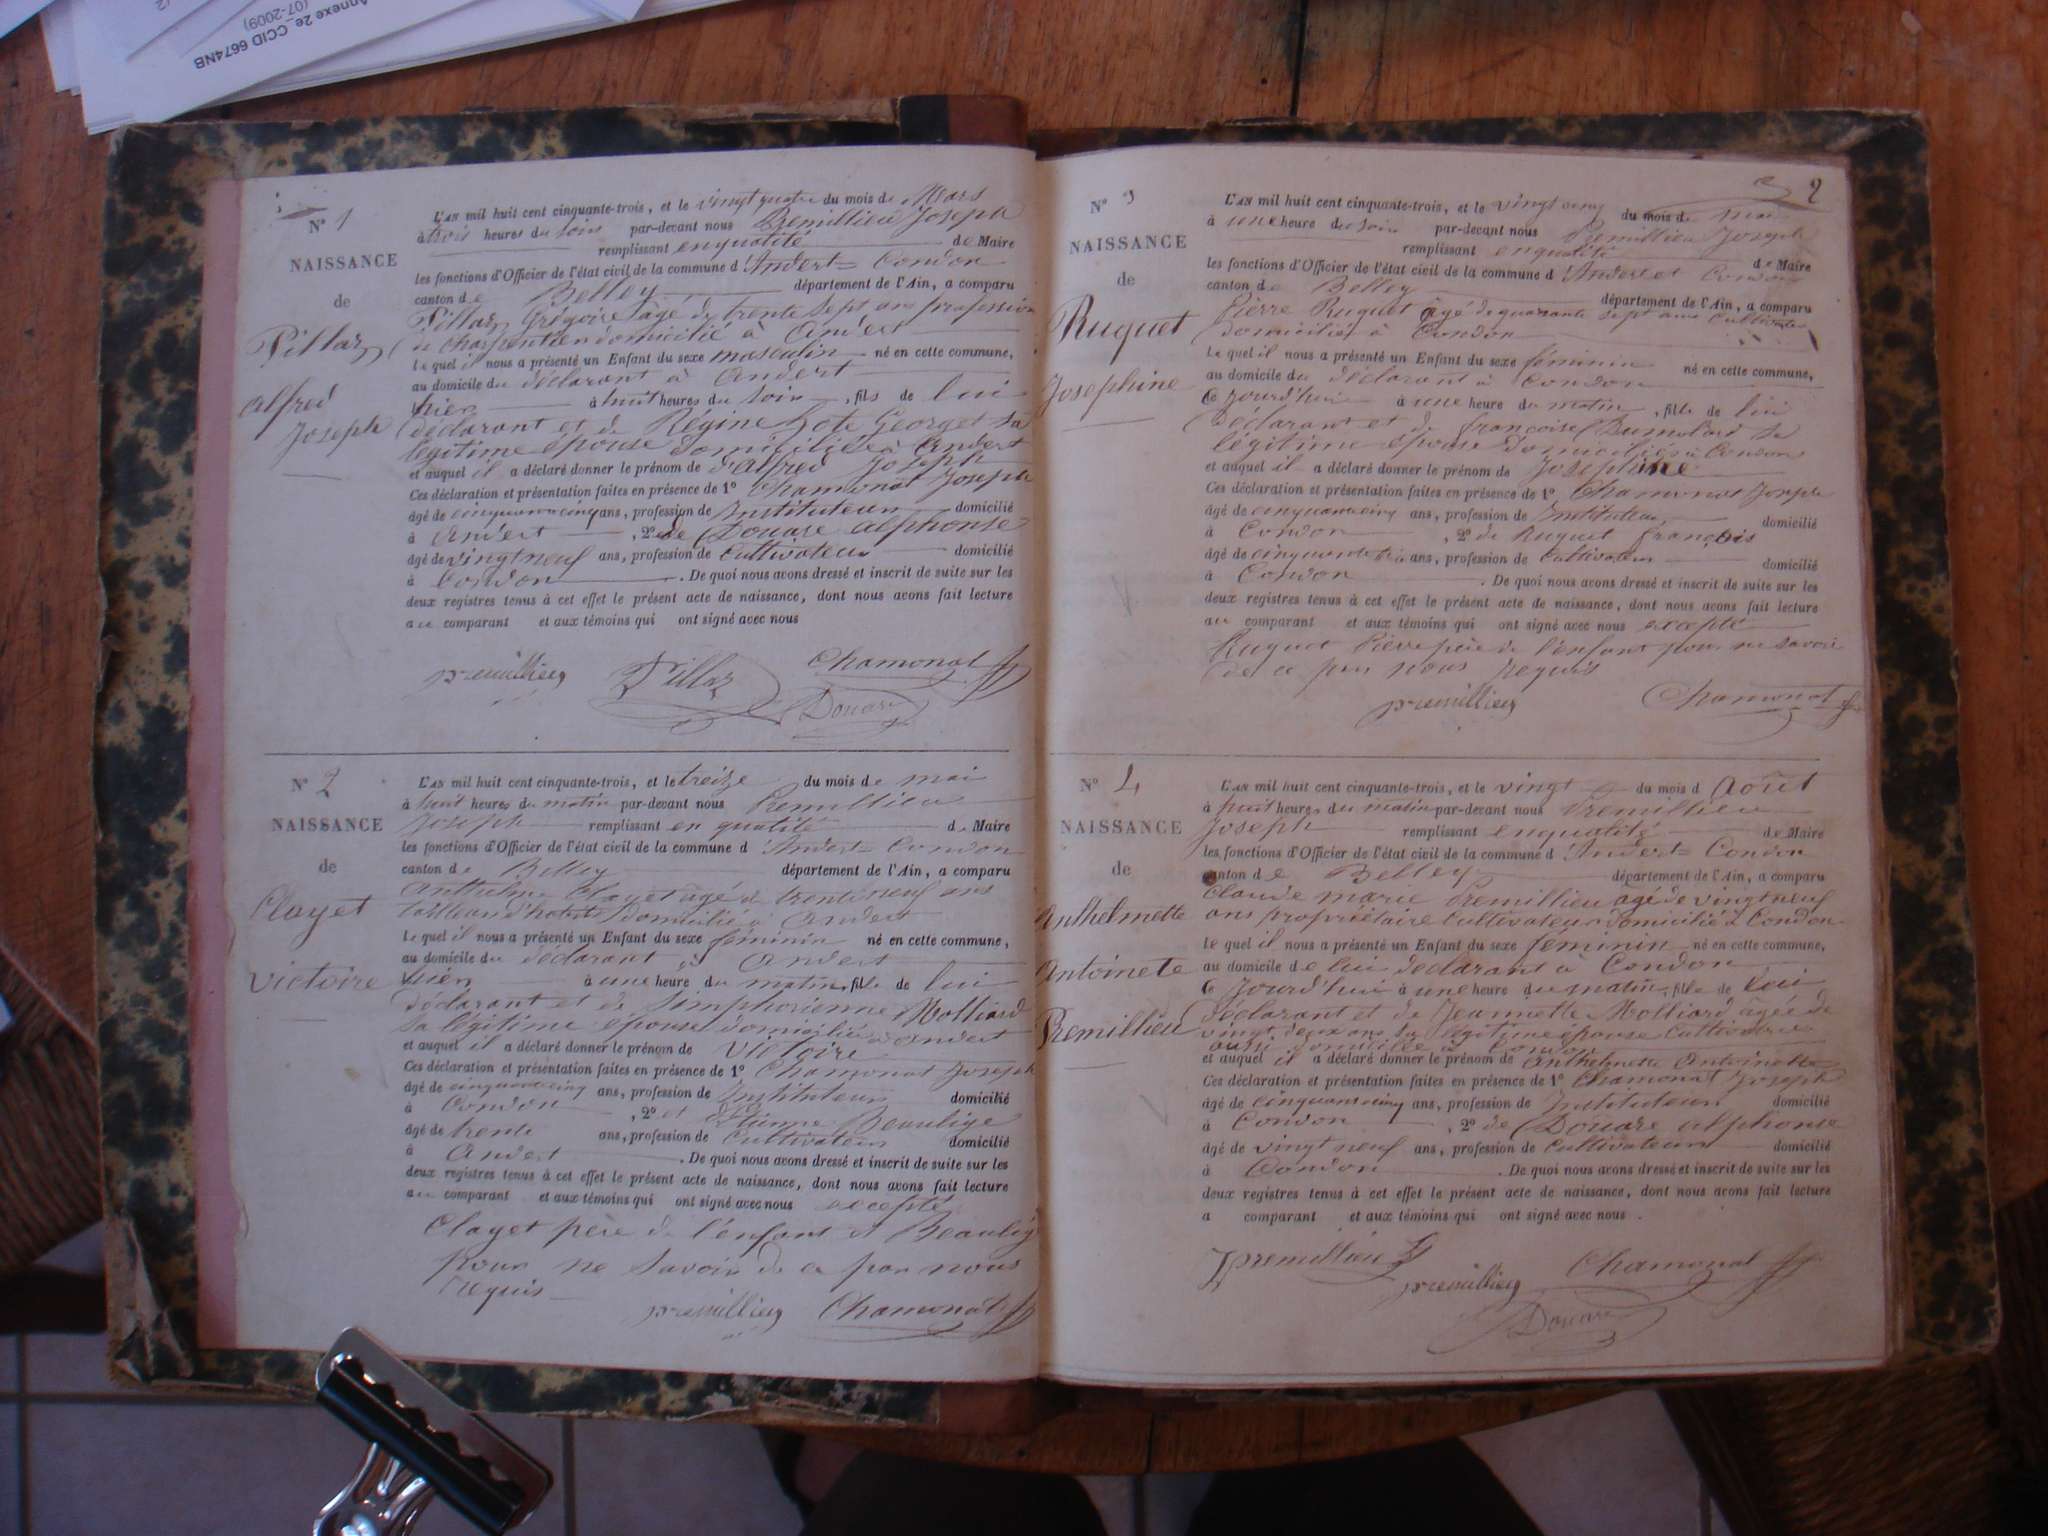 Annexe 2e_CCID 6674NB
(07-2009)
N° 1
NAISSANCE
de
Pillaz
Alfred
Joseph
L'AN mil huit cent cinquante-trois, et le vingt quatre du mois de Mars
à trois heures du soir par-devant nous Premillieu Joseph
remplissant en qualité de Maire
les fonctions d'Officier de l'état civil de la commune d'Andert = Condon
canton de Belley département de l'Ain, a comparu
Pillaz Grégoire âgé de trente sept ans profession
de charpentier domicilié à Andert
lequel il nous a présenté un Enfant du sexe masculin né en cette commune,
au domicile du déclarant à Andert
hier à huit heures du soir, fils de lui
déclarant et de Régine Georget sa
légitime épouse domiciliée à Andert
et auquel il a déclaré donner le prénom d'Alfred Joseph
Ces déclaration et présentation faites en présence de 1° Chamonat Joseph
âgé de cinquante cinq ans, profession de Instituteur domicilié
à Andert, 2° de Douare alphonse
âgé de vingt neuf ans, profession de cultivateur domicilié
à Condon. De quoi nous avons dressé et inscrit de suite sur les
deux registres tenus à cet effet le présent acte de naissance, dont nous avons fait lecture
au comparant et aux témoins qui ont signé avec nous
premillieu Pillaz Chamonat
Douare
N° 2
NAISSANCE
de
Clayet
Victoire
L'AN mil huit cent cinquante-trois, et le treize du mois de mai
à huit heures du matin par-devant nous Premillieu
Joseph remplissant en qualité de Maire
les fonctions d'Officier de l'état civil de la commune d'Andert = Condon
canton de Belley département de l'Ain, a comparu
Anthelme Clayet âgé de trente neuf ans
tailleur d'habits domicilié à Andert
lequel il nous a présenté un Enfant du sexe féminin né en cette commune,
au domicile du déclarant à Andert
hier à une heure du matin, fille de lui
déclarant et de Simphorienne Molliard
sa légitime épouse domiciliée à andert
et auquel il a déclaré donner le prénom de Victoire
Ces déclaration et présentation faites en présence de 1° Chamonat Joseph
âgé de cinquante cinq ans, profession de Instituteur domicilié
à Condon, 2° et Etienne Beaulige
âgé de trente ans, profession de Cultivateur domicilié
à Andert. De quoi nous avons dressé et inscrit de suite sur les
deux registres tenus à cet effet le présent acte de naissance, dont nous avons fait lecture
au comparant et aux témoins qui ont signé avec nous excepté
Clayet père de l'enfant et Beaulige
pour ne savoir de ce par nous
requis
premillieu Chamonat
2
N° 3
NAISSANCE
de
Ruguet
Josephine
L'AN mil huit cent cinquante-trois, et le vingt cinq du mois de mai
à une heure du soir par-devant nous Premillieu Joseph
remplissant en qualité de Maire
les fonctions d'Officier de l'état civil de la commune d'Andert et Condon
canton de Belley département de l'Ain, a comparu
Pierre Ruguet âgé de quarante sept ans cultivateur
domicilié à Condon
Lequel il nous a présenté un Enfant du sexe féminin né en cette commune,
au domicile du déclarant à Condon
ce jourd'hui à une heure du matin, fille de lui
déclarant et de françoise Dumolard sa
légitime épouse domiciliée à Condon
et auquel il a déclaré donner le prénom de Josephine
Ces déclaration et présentation faites en présence de 1° Chamonat Joseph
âgé de cinquante cinq ans, profession de Instituteur domicilié
à Condon, 2° de Ruguet françois
âgé de cinquante ans, profession de cultivateur domicilié
à Condon. De quoi nous avons dressé et inscrit de suite sur les
deux registres tenus à cet effet le présent acte de naissance, dont nous avons fait lecture
au comparant et aux témoins qui ont signé avec nous excepté
Ruguet Pierre père de l'enfant pour ne savoir
de ce par nous requis
premillieu Chamonat
N° 4
NAISSANCE
de
Anthelmette
Antoinete
Premillieu
L'AN mil huit cent cinquante-trois, et le vingt du mois d'Août
à huit heures du matin par-devant nous Premillieu
Joseph remplissant en qualité de Maire
les fonctions d'Officier de l'état civil de la commune d'Andert = Condon
canton de Belley département de l'Ain, a comparu
Claude marie Premillieu âgé de vingt neuf
ans propriétaire Cultivateur domicilié à Condon
le quel il nous a présenté un Enfant du sexe féminin né en cette commune,
au domicile de lui déclarant à Condon
ce jourd'hui à une heure du matin, fille de lui
déclarant et de Jeannette Molliard âgée de
vingt deux ans sa légitime épouse Cultivatrice
aussi domiciliée à Condon
et auquel il a déclaré donner le prénom de Anthelmette Antoinette
Ces déclaration et présentation faites en présence de 1° Chamonat Joseph
âgé de cinquante cinq ans, profession de Instituteur domicilié
à Condon, 2° de Douare alphonse
âgé de vingt neuf ans, profession de cultivateur domicilié
à Condon. De quoi nous avons dressé et inscrit de suite sur les
deux registres tenus à cet effet le présent acte de naissance, dont nous avons fait lecture
a comparant et aux témoins qui ont signé avec nous.
premillieu Chamonat
premillieu
Douare